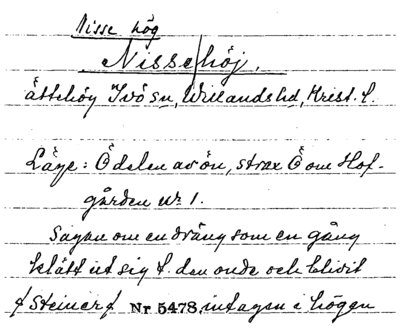 Nisse hög
Nisse höj.
Ättehög Ivö sn, Willands hd, Krist. l.
Läge: Ö delen av ön, strax Ö om Hof-
gården nr 1.
Sagan om en dräng som en gång
klätt ut sig t. den onde och blivit
Nr 5478, intagen i högen